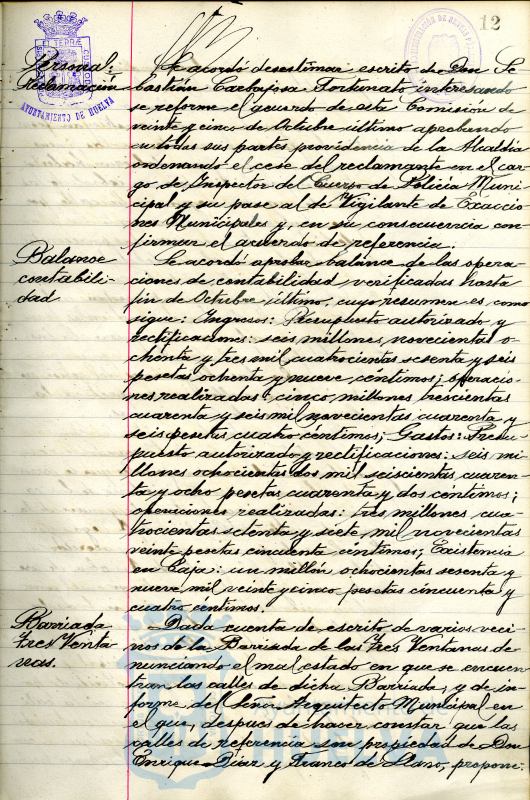 12
AYUNTAMIENTO DE HUELVA
Personal:
Reclamación
Se acordó desestimar escrito de Don Se
bastián Carbajosa Fortunato interesando
se reforme el acuerdo de esta Comisión de
veinte y cinco de Octubre último aprobando
en todas sus partes providencia de la Alcaldia
ordenando el cese del reclamante en el car
go de Inspector del Cuerpo de Policía Muni
cipal y su pase al de Vigilante de Exaccio
nes Municipales y, en su consecuencia con
firmar el acuerdo de referencia.
Balance
contabili-
dad
Se acordó aprobar balance de las opera
ciones de contabilidad verificadas hasta
fin de Octubre último, cuyo resumen es como
sigue: Ingresos: Presupuesto autorizado y
rectificaciones: seis millones, novecientas o-
chenta y tres mil cuatrocientas sesenta y seis
pesetas ochenta y nueve céntimos; operacio
nes realizadas: cinco millones trescientas
cuarenta y seis mil novecientas cuarenta y
seis pesetas cuatro céntimos; Gastos: Presu
puesto autorizado y rectificaciones: seis mi
llones ochocientas dos mil seiscientas cuaren
ta y ocho pesetas cuarenta y dos céntimos;
operaciones realizadas: tres millones cua
trocientas setenta y siete mil novecientas
veinte pesetas cincuenta céntimos; Existencia
en Caja: un millón ochocientas sesenta y
nueve mil veinte y cinco pesetas cincuenta y
cuatro céntimos.
Barriada
tres Venta
nas.
Dada cuenta de escrito de varios veci
nos de la Barriada de las Tres Ventanas de
nunciando el mal estado en que se encuen
tran las calles de dicha Barriada, y de in
forme del Señor Arquitecto Municipal en
el que, despues de hacer constar que las
calles de referencia son propiedad de Don
Enrique Díaz y Franco de Llano, propone:
HUELVA